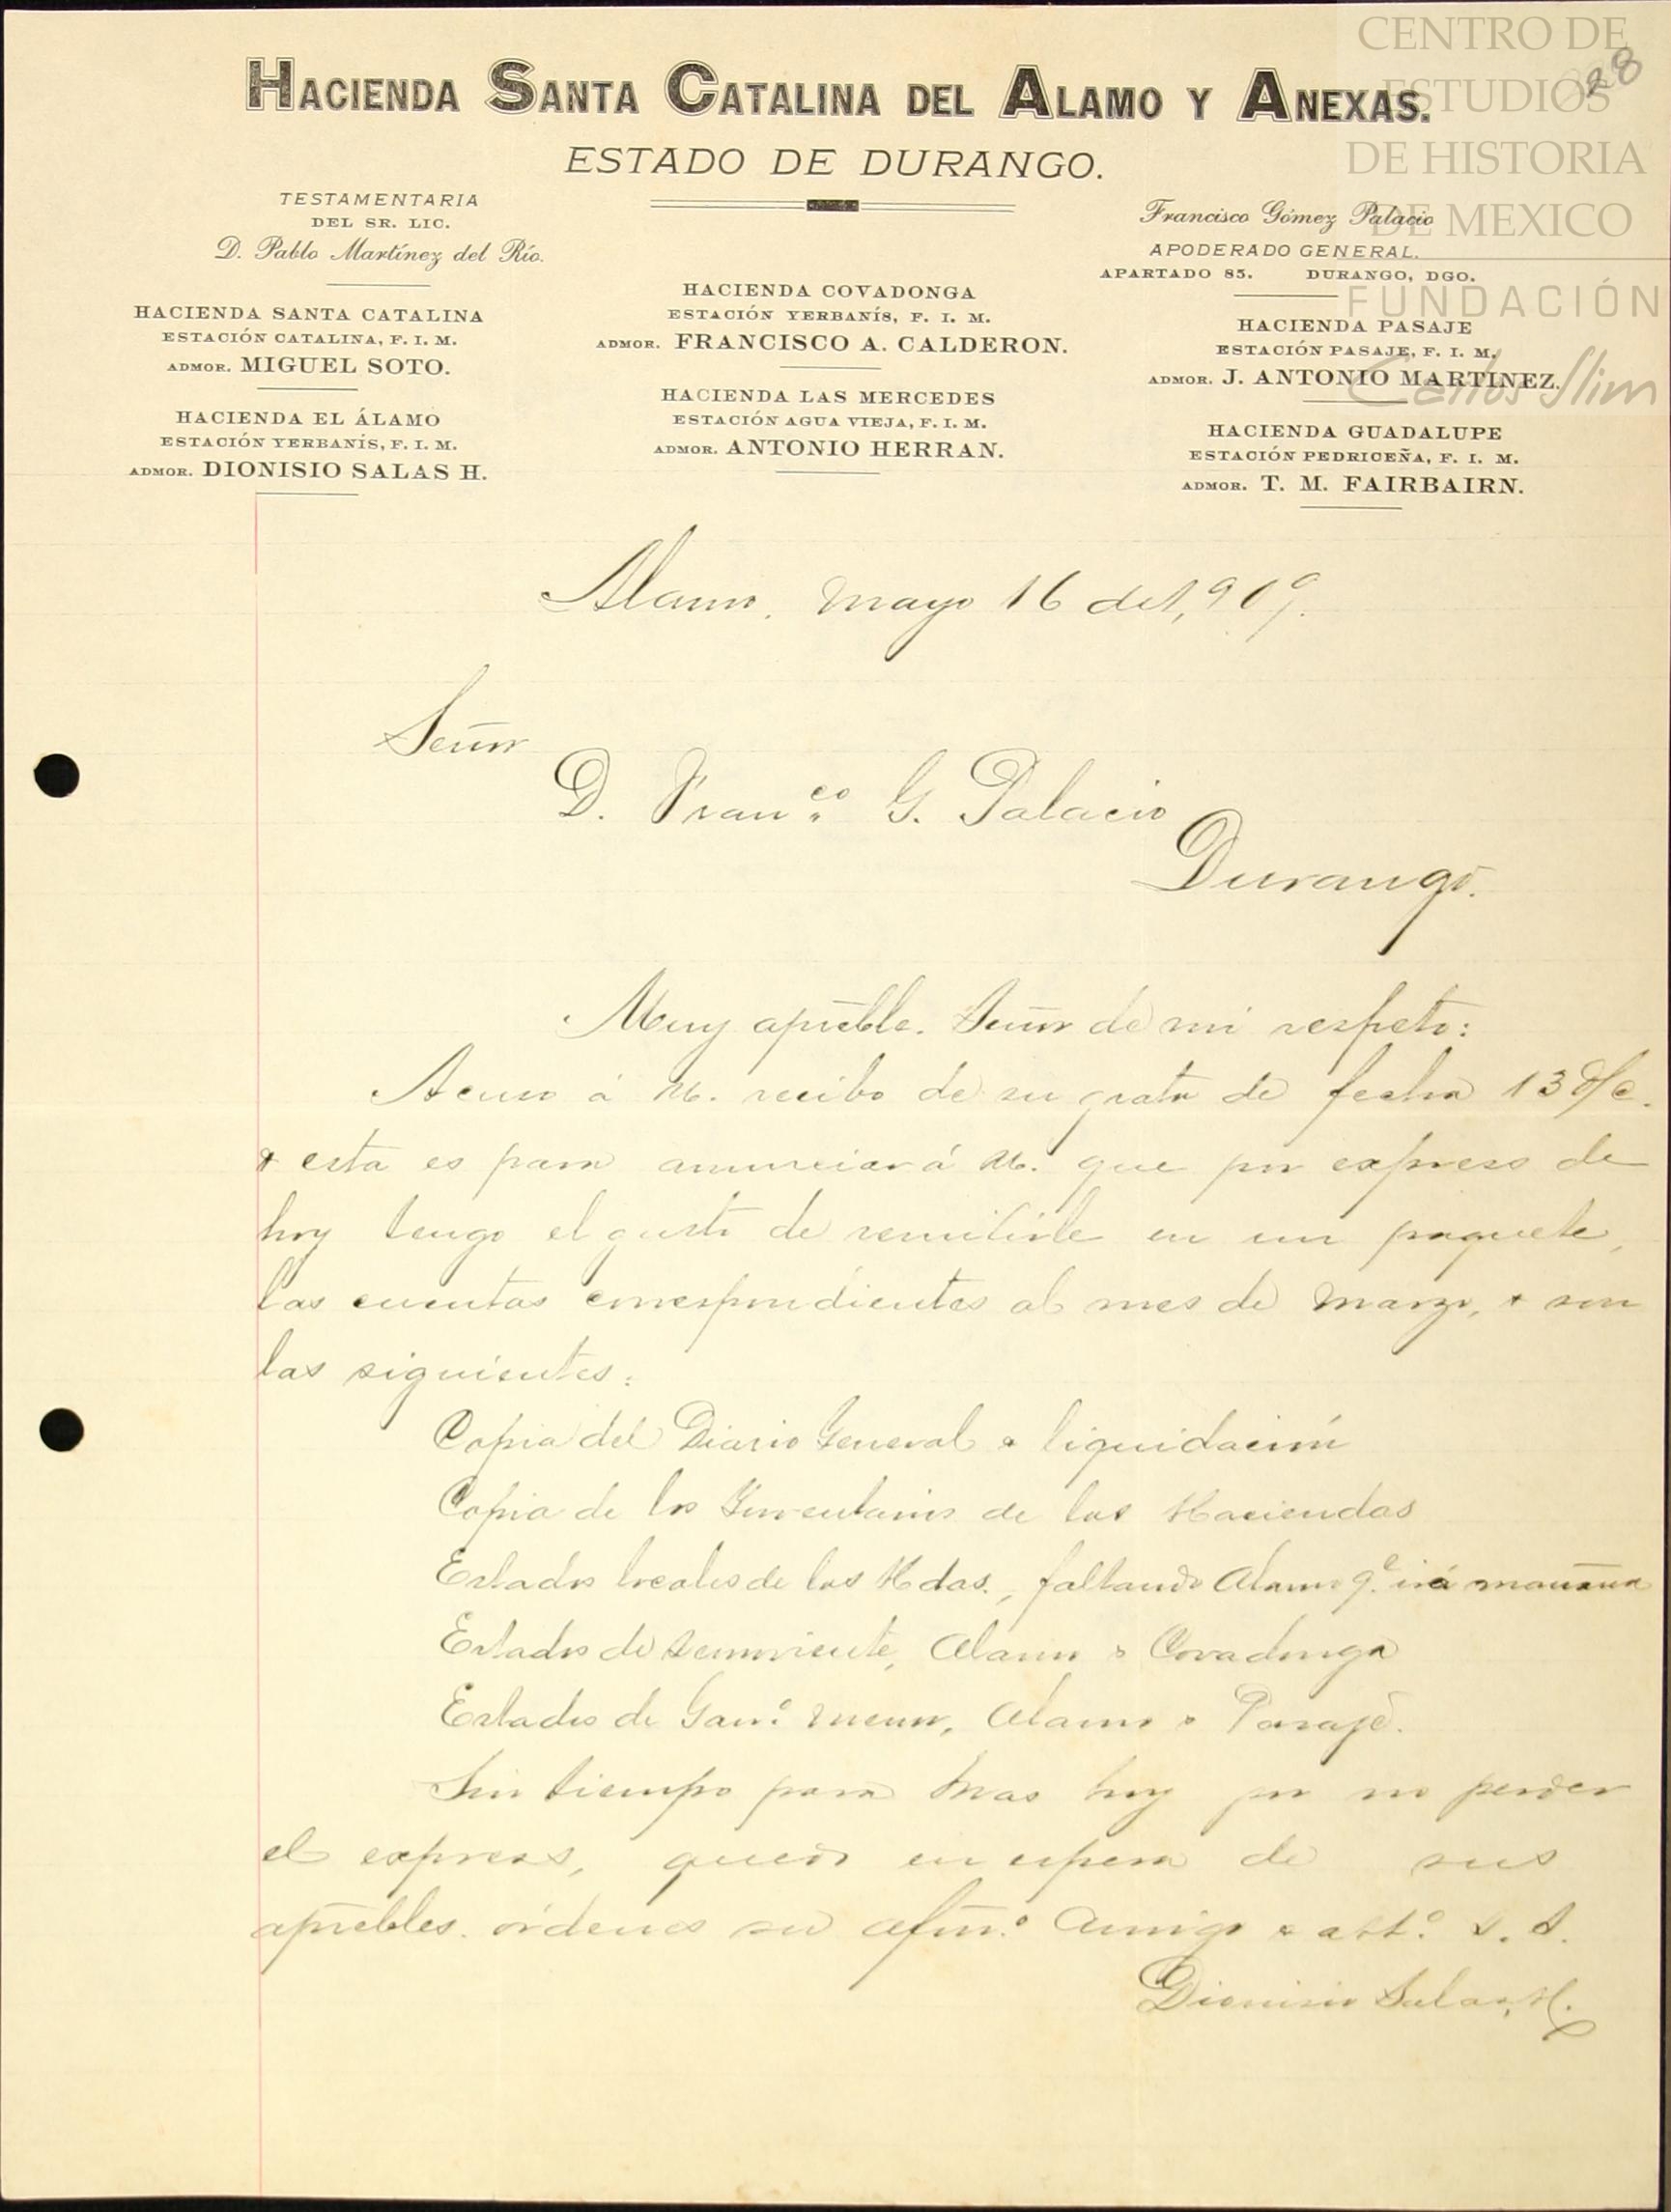 CENTRO DE
ESTUDIOS
DE HISTORIA
DE MEXICO
FUNDACIÓN
Carlos Slim
28
HACIENDA SANTA CATALINA DEL ALAMO Y ANEXAS.
ESTADO DE DURANGO.
TESTAMENTARIA
DEL SR. LIC.
D. Pablo Martínez del Río.
HACIENDA SANTA CATALINA
ESTACIÓN CATALINA, F. I. M.
ADMOR. MIGUEL SOTO.
HACIENDA EL ÁLAMO
ESTACIÓN YERBANÍS, F. I. M.
ADMOR. DIONISIO SALAS H.
HACIENDA COVADONGA
ESTACIÓN YERBANÍS, F. I. M.
ADMOR. FRANCISCO A. CALDERON.
HACIENDA LAS MERCEDES
ESTACIÓN AGUA VIEJA, F. I. M.
ADMOR. ANTONIO HERRAN.
Francisco Gómez Palacio
APODERADO GENERAL.
APARTADO 85. DURANGO, DGO.
HACIENDA PASAJE
ESTACIÓN PASAJE, F. I. M.
ADMOR. J. ANTONIO MARTINEZ.
HACIENDA GUADALUPE
ESTACIÓN PEDRICEÑA, F. I. M.
ADMOR. T. M. FAIRBAIRN.
Alamo. Mayo 16 de 1,909.
Señor
D. Franco. G. Palacio
Durango.
Muy apreble. Señor de mi respeto:
Acuso á U. recibo de su grata de fecha 13 d/c.
& esta es para anunciar á U. que por expreso de
hoy tengo el gusto de remitirle en un paquete,
las cuentas correspondientes al mes de Marzo, & son
las siguientes:
Copia del Diario General & liquidación
Copia de los Inventarios de las Haciendas
Estados locales de las Hdas., faltando Alamo qe. irá mañana
Estados de Semoviente, Alamo & Covadonga
Estados de Gano. menor, Alamo & Pasaje.
Sin tiempo para mas hoy por no perder
el expreso, quedo en espera de sus
aprebles. órdenes su afmo. Amigo & atto. S. S.
Dionisio Salas H.